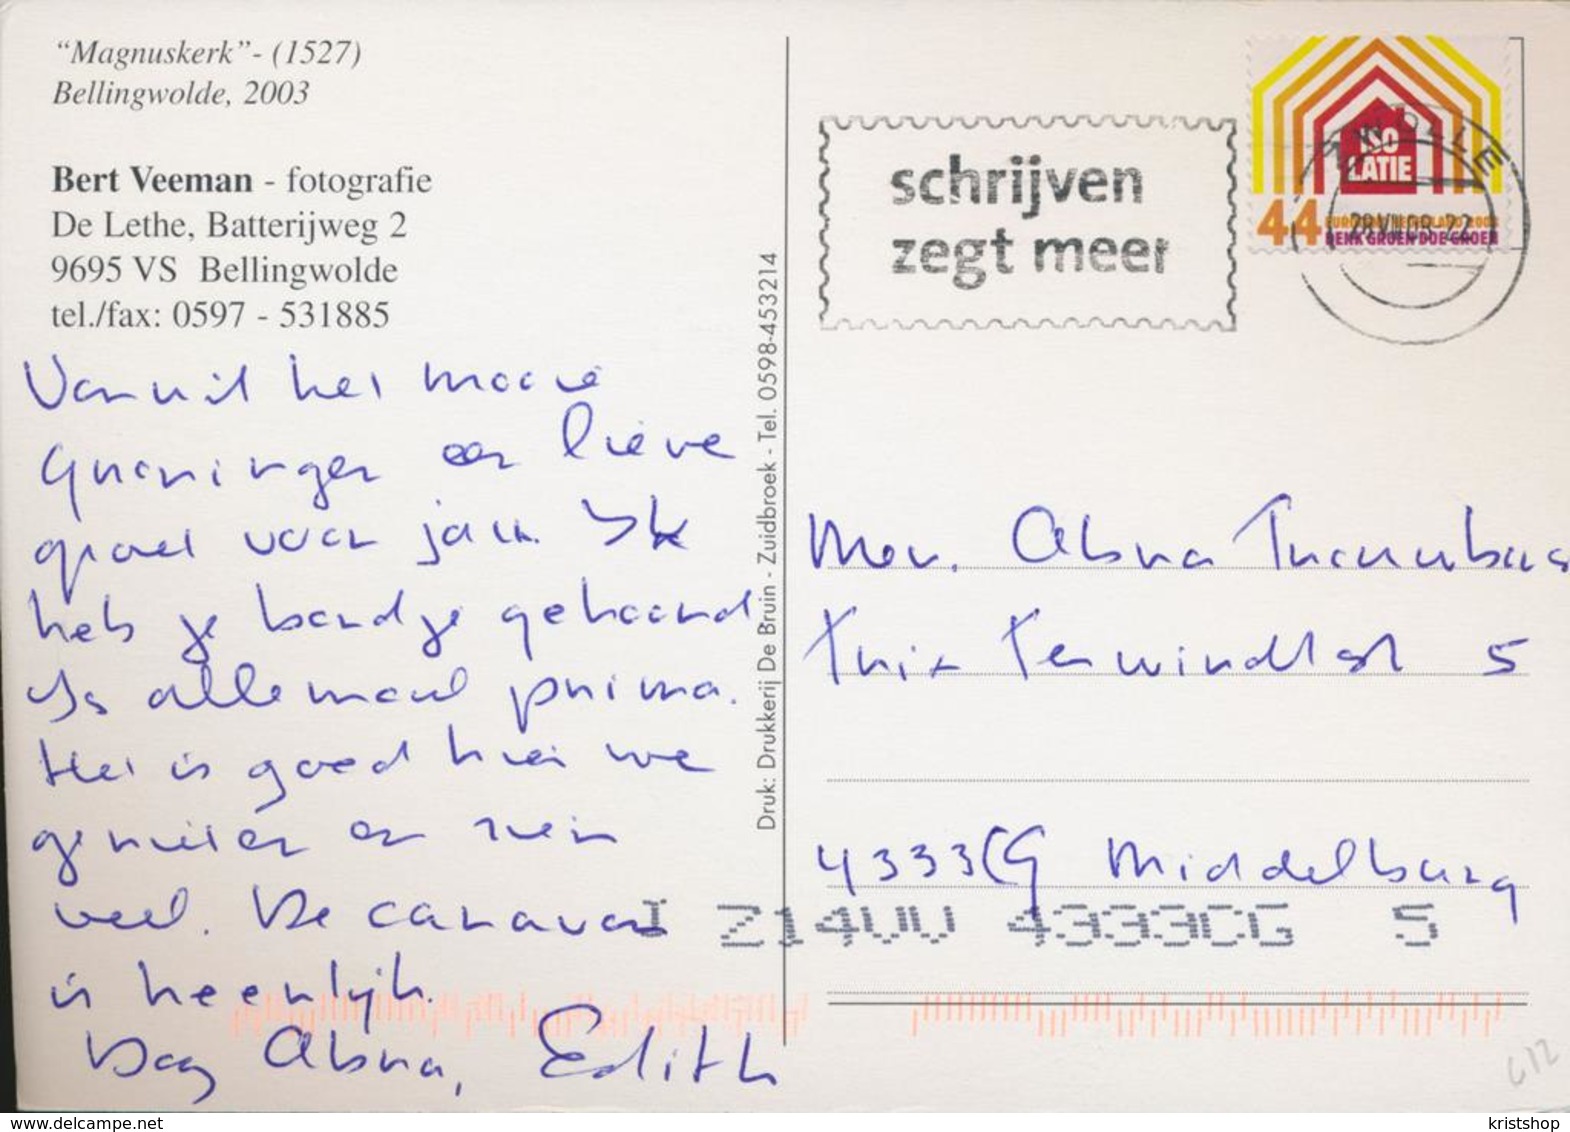 "Magnuskerk"- (1527)
Bellingwolde, 2003
Bert Veeman - fotografie
De Lethe, Batterijweg 2
9695 VS Bellingwolde
tel./fax: 0597 - 531885
Vanuit het mooie
Groningen een lieve
groet voor jou. Ik
heb je bandje gehoord
Is allemaal prima.
Het is goed hier we
genieten en zien
veel. De caravan
is heerlijk.
Dag Abna, Edith
Druk: Drukkerij De Bruin - Zuidbroek - Tel. 0598-453214
schrijven
zegt meer
ISO
LATIE
44
DENK GROEN DOE GROEN
ZWOLLE
Mev. Abna
Trix Terwindtstr 5
4333CG Middelburg
Z14UU 4333CG 5
612
www.delcampe.net
kristshop